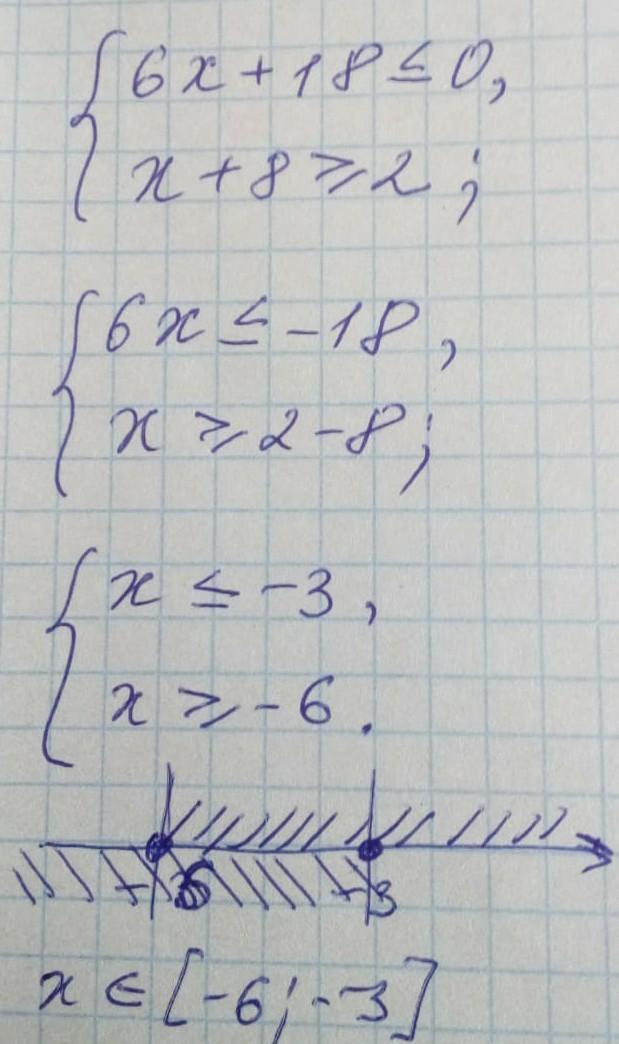 6x+18≤0,
x+8≥2;
6x≤-18,
x≥2-8;
x≤-3,
x≥-6.
-6 -3
x∈[-6;-3]